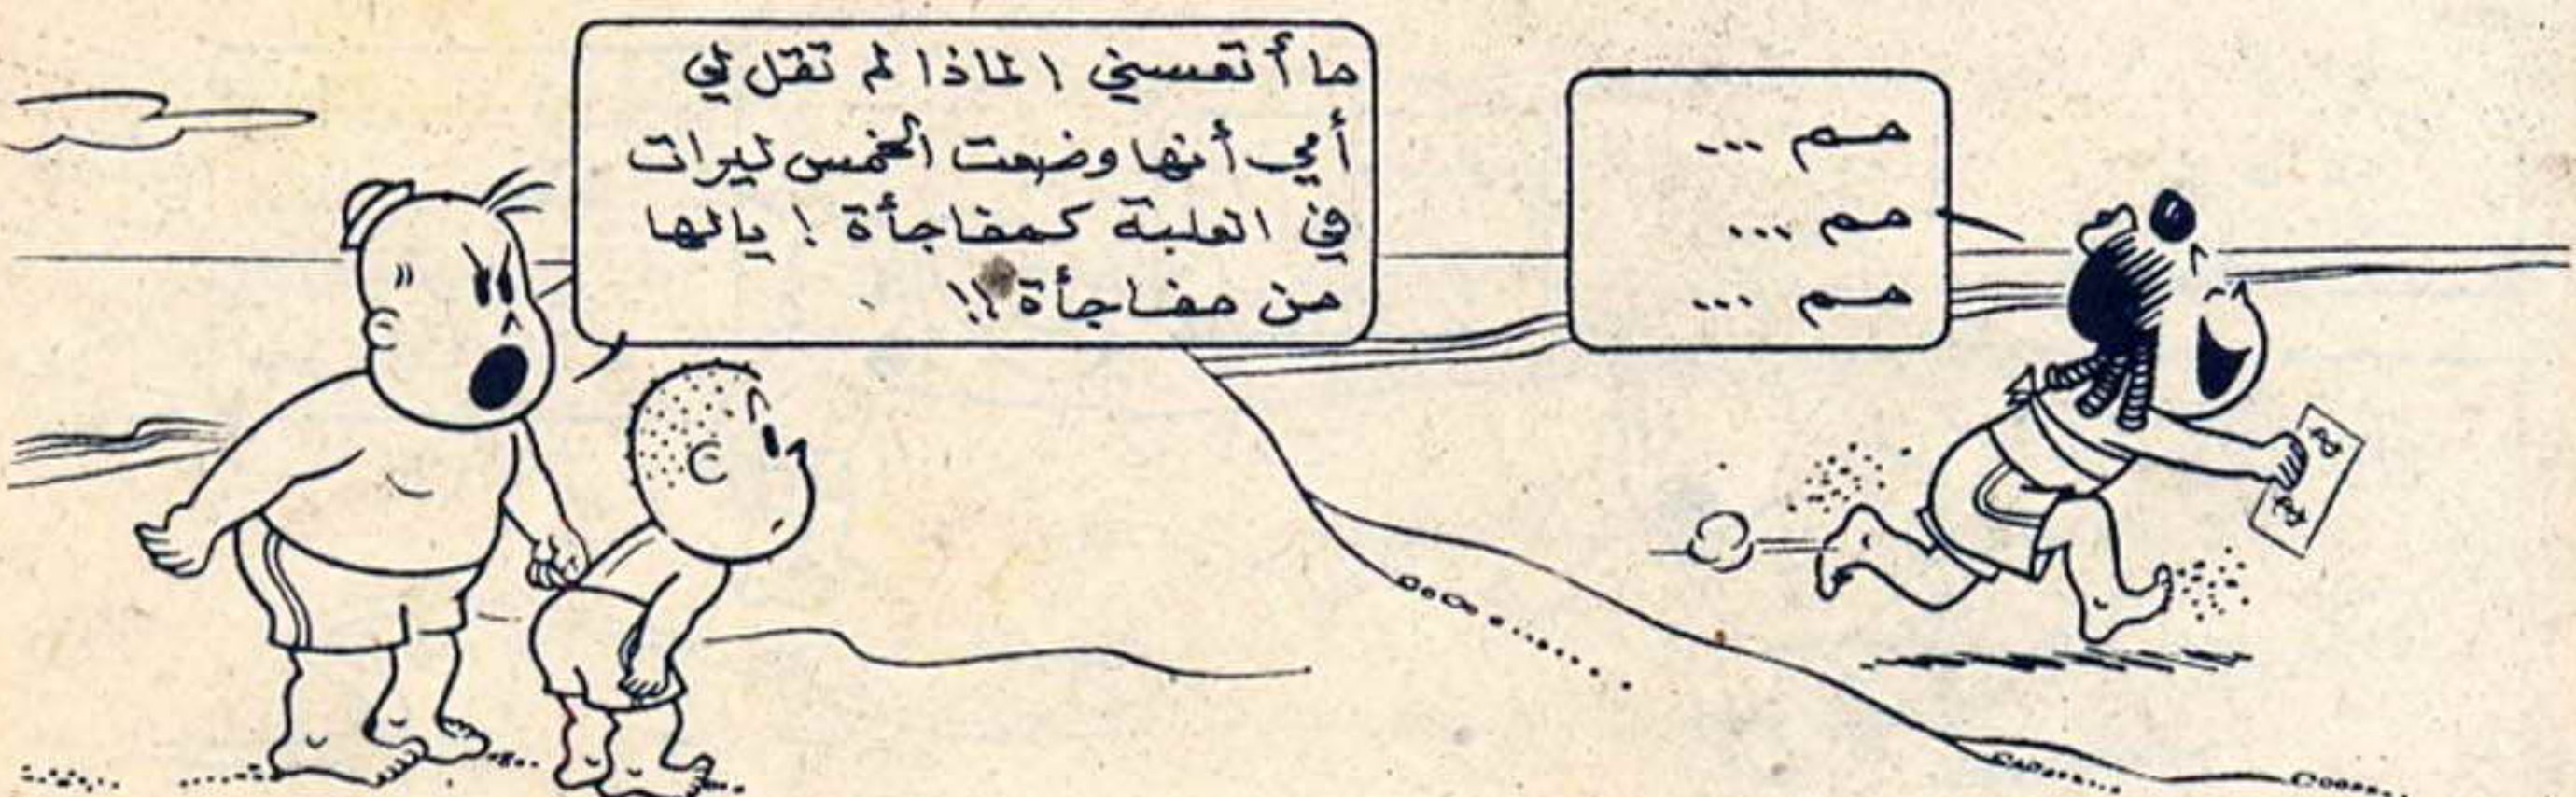 هم ...
هم ...
هم ...
ما أتعسني ! لماذا لم تقل لي
أمي أنها وضعت الخمس ليرات
في العلبة كمفاجأة ! يالها
من مفاجأة !!